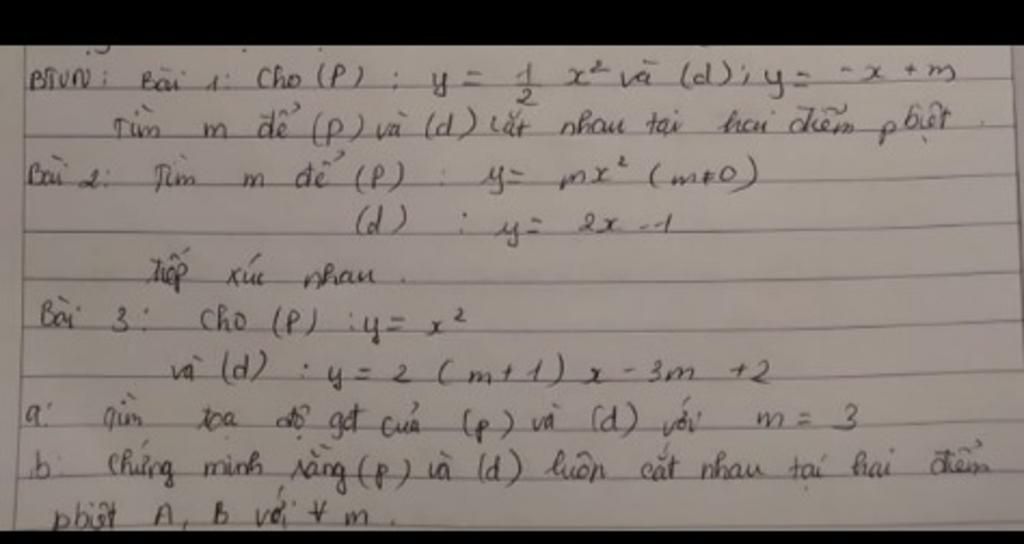 BTVN: Bài 1: Cho (P) : y = 1/2 x² và (d); y = -x + m
Tìm m để (P) và (d) cắt nhau tại hai điểm pbiệt.
Bài 2: Tìm m để (P) : y = mx² (m≠0)
(d) : y = 2x - 1
tiếp xúc nhau.
Bài 3: Cho (P) : y = x²
và (d) : y = 2 (m+1) x - 3m + 2
a: tìm toạ độ gđ của (P) và (d) với m = 3
b: Chứng minh rằng (P) và (d) luôn cắt nhau tại hai điểm
pbiệt A, B với ∀ m.